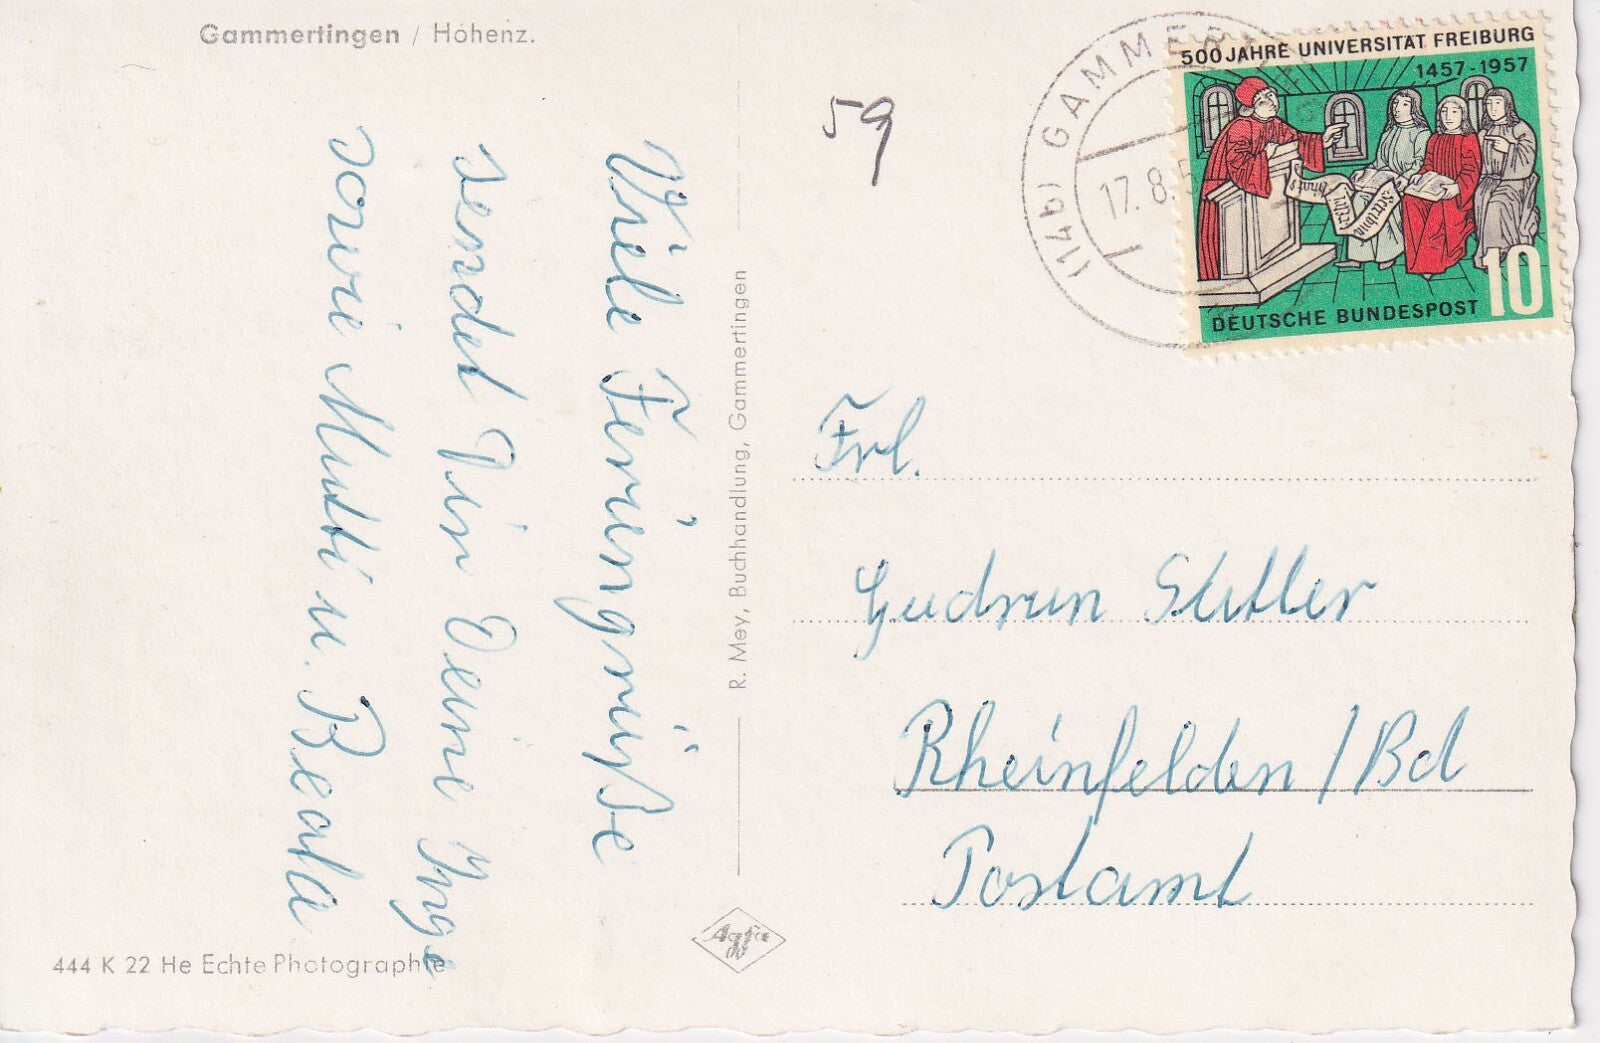 Gammertingen / Hohenz.
Viele Feriengrüße
sendet Dir Deine Inge
sowie Mutti u. Beate
444 K 22 He Echte Photographie
R. Mey, Buchhandlung, Gammertingen
Agfa
59
(14b) GAMMER
17.8.5
500 JAHRE UNIVERSITÄT FREIBURG
1457-1957
DEUTSCHE BUNDESPOST 10
Frl.
Gudrun
Rheinfelden / Bd
Postamt